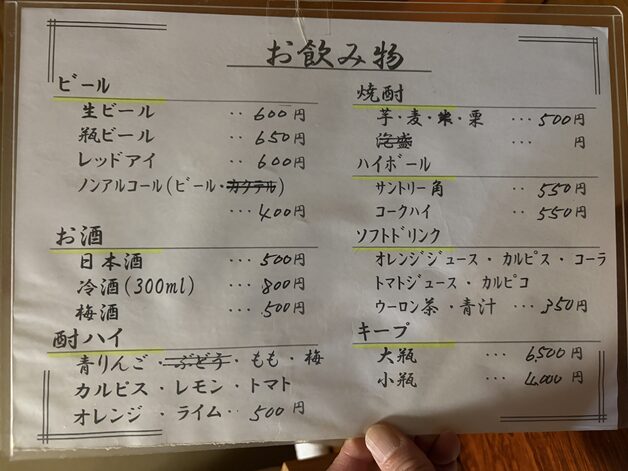 お飲み物
ビール
生ビール ‥ 600円
瓶ビール ‥ 650円
レッドアイ ‥ 600円
ノンアルコール(ビール・カクテル)
… 400円
お酒
日本酒 … 500円
冷酒(300ml) … 800円
梅酒 … 500円
酎ハイ
青りんご・ぶどう・もも・梅
カルピス・レモン・トマト
オレンジ・ライム‥500円
焼酎
芋・麦・米・栗 … 500円
泡盛 … 円
ハイボール
サントリー角 ‥ 550円
コークハイ ‥ 550円
ソフトドリンク
オレンジジュース・カルピス・コーラ
トマトジュース・カルピコ
ウーロン茶・青汁 … 350円
キープ
大瓶 … 6,500円
小瓶 … 4,000円